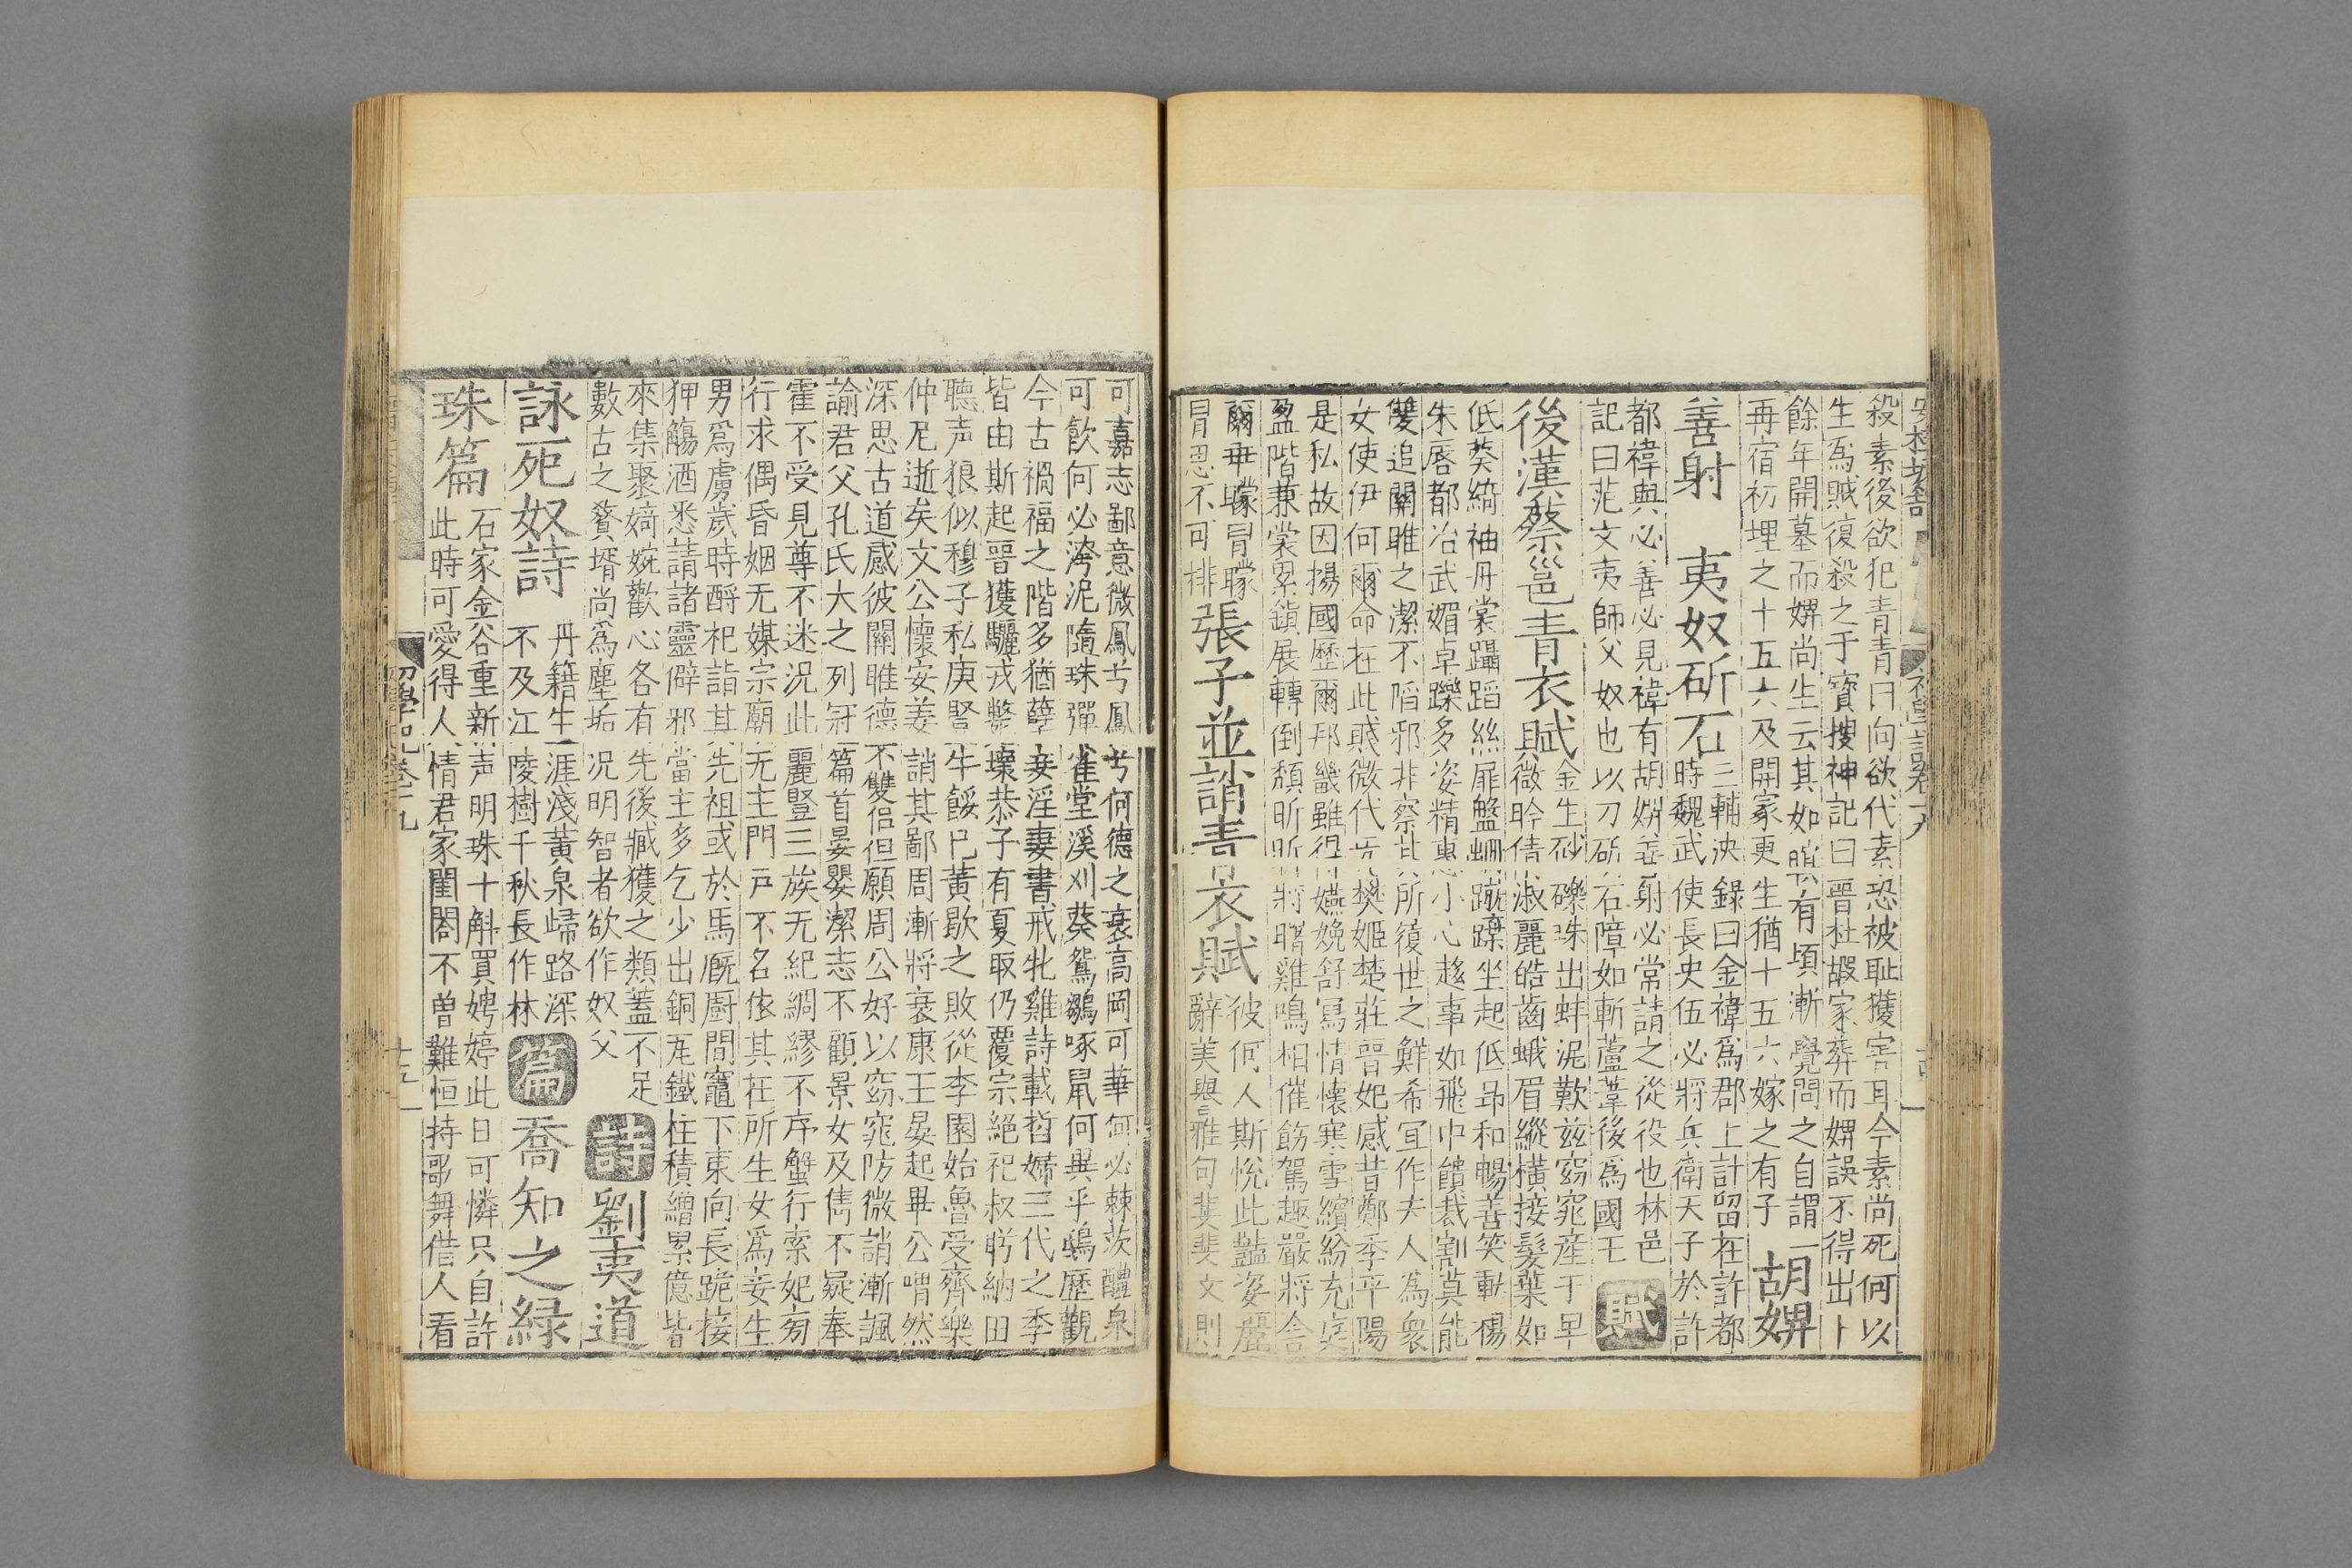 殺素後欲犯青青曰向欲代素恐被耻獲害耳今素尚死何以
生爲賊復殺之于寳搜神記曰晉杜嘏家葬而婢誤不得出卜
餘年開墓而婢尚生云其如瞑有頃漸覺問之自謂一
再宿初埋之十五六及開冢更生猶十五六嫁之有子
胡婢
善射 夷奴斫石
三輔決錄曰金禕爲郡上計留在許都
時魏武使長史伍必將兵衛天子於許
都禕與必善必見禕有胡婢善射必常請之從役也林邑
記曰范文夷師父奴也以刀斫石障如斬蘆葦後爲國王
賦
後漢蔡邕青衣賦
金生砂礫珠出蚌泥歎兹窈窕産于卑
微盼倩淑麗皓齒蛾眉縱横接髮葉如
低葵綺袖丹裳躡蹈絲扉盤跚蹴蹀坐起低昂和暢善笑動揚
朱唇都冶武媚卓躒多姿精惠小心趍事如飛中饋裁割莫能
雙追關雎之潔不陷邪非察其所復世之鮮希冝作夫人爲衆
女使伊何爾命在此賎微代无樊姬楚莊晉妃感昔鄭季平陽
是私故因揚國歴爾邦畿雖得嬿娩舒寫情懷寒雪繽紛充庭
盈階兼裳累鎮展轉倒頹昕昕將曙雞鳴相催飭駕趣嚴將舍
爾乖矇冒矇
冒思不可排
張子並誚青衣賦
彼何人斯恱此豔姿麗
辭美與雅句斐斐文則
可嘉志鄙意微鳳兮鳳兮何德之衰高岡可華何必棘茨醴泉
可飲何必洿泥隋珠彈雀堂溪刈葵鴛鶵啄鼠何異乎鴟歴觀
今古禍福之階多猶孽妾淫妻書戒牝雞詩載哲婦三代之季
皆由斯起晉獲驪戎斃壞恭子有夏取仍覆宗絕祀叔肹納田
聽声狼似穆子私庚豎牛餒己黄歇之敗從李園始魯受齊樂
仲尼逝矣文公懷安姜誚其鄙周漸將衰康王晏起畢公喟然
深思古道感彼關雎德不雙侣但願周公好以窈窕防微誚漸諷
諭君父孔氏大之列冠篇首晏嬰潔志不顧景女及雋不疑奉
霍不受見尊不迷況此麗豎三族无紀綢繆不序蟹行索妃旁
行求偶昏姻无媒宗廟无主門戸不名依其在所生女爲妾生
男爲虜歲時酹祀詣其先祖或於馬廐厨間竈下東向長跪接
狎觴酒悉請諸靈僻邪當主多乞少出銅丸鐵柱積繒累億皆
來集聚嫡婉歡心各有先後臧獲之類蓋不足
數古之贅壻尚爲塵垢況明智者欲作奴父
詩
劉夷道
詠死奴詩
丹籍生涯淺黄泉歸路深
不及江陵樹千秋長作林
篇
喬知之緑
珠篇
石家金谷重新声明珠十斛買娉婷此日可憐只自許
此時可愛得人情君家閨閤不曾難恒持歌舞借人看
初學記卷十九
十五